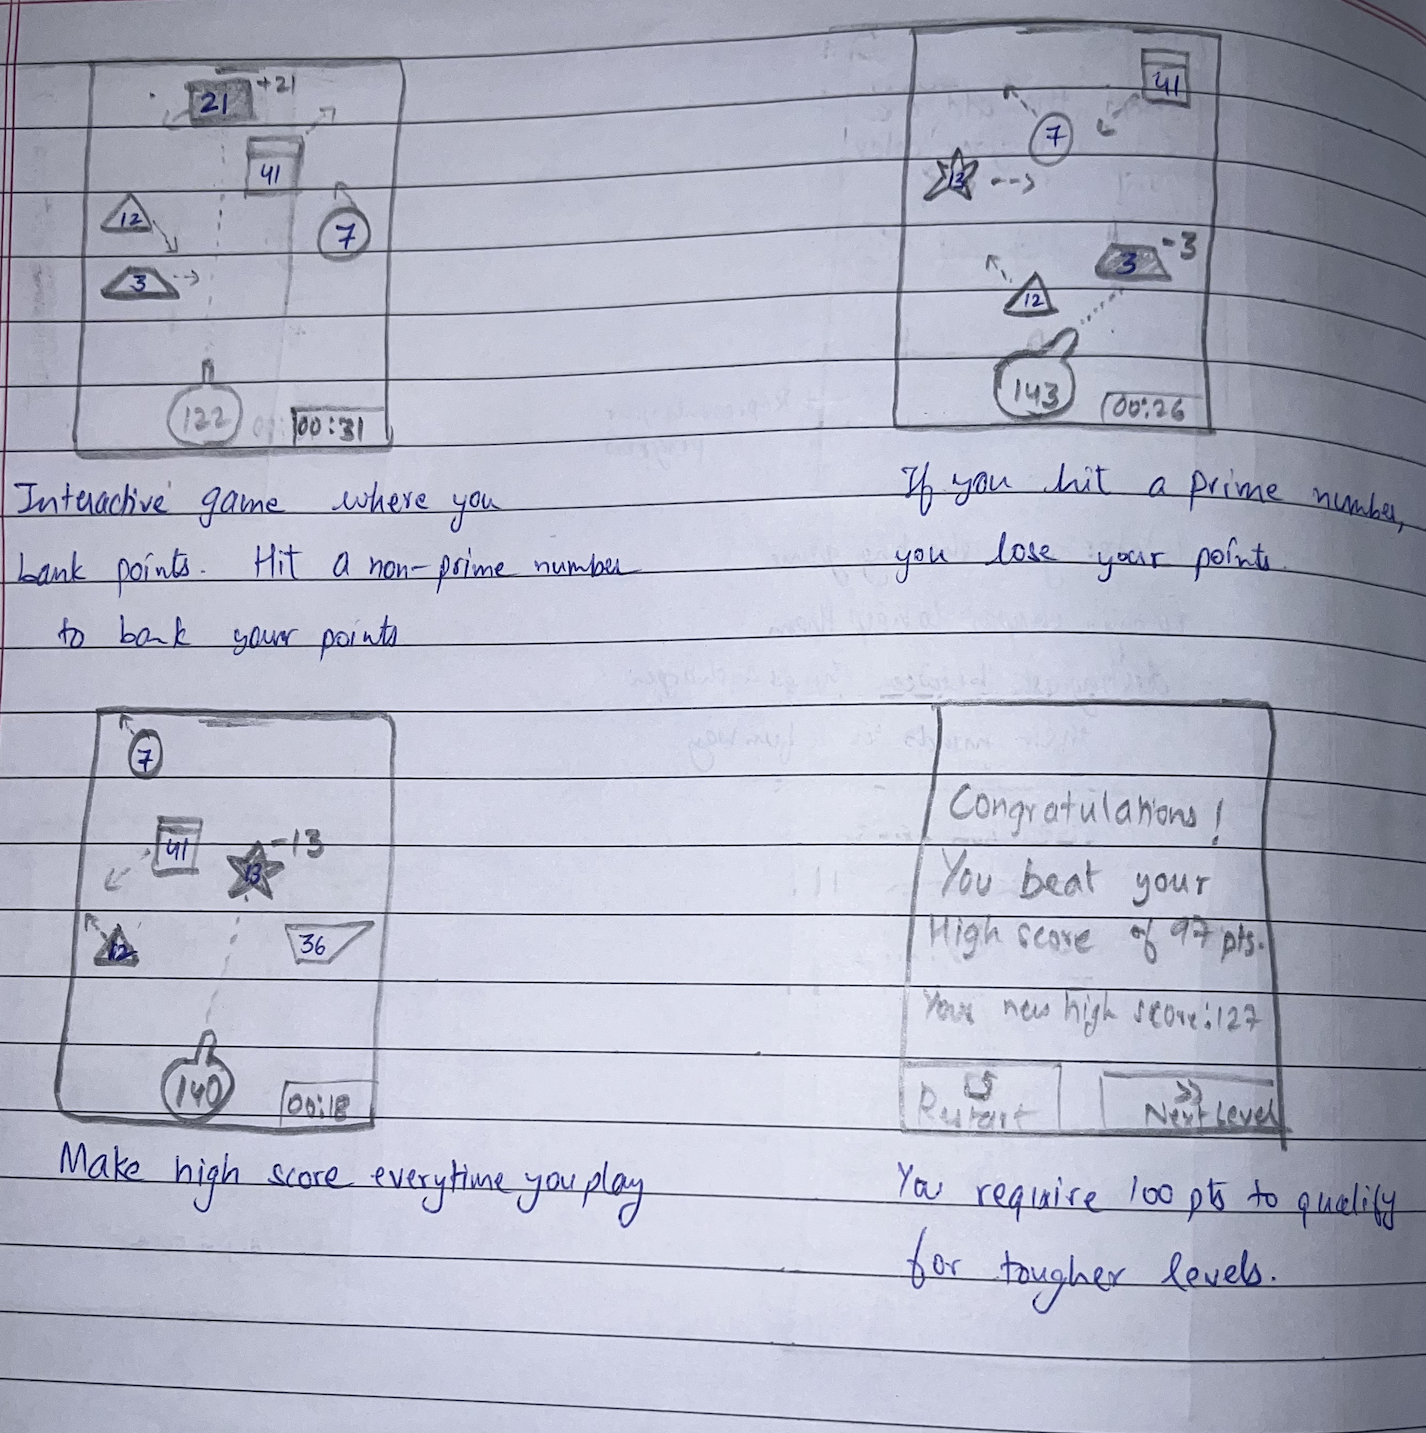 21 +21
41
12
7
3
122
00:31
Interactive game where you
bank points. Hit a non-prime number
to bank your points
41
7
13
3 -3
12
143
00:26
If you hit a prime number,
you lose your points.
7
41
13 -13
12
36
140
00:18
Make high score everytime you play
Congratulations!
You beat your
High score of 97 pts.
Your new high score:127
Restart
Next Level
You require 100 pts to qualify
for tougher levels.